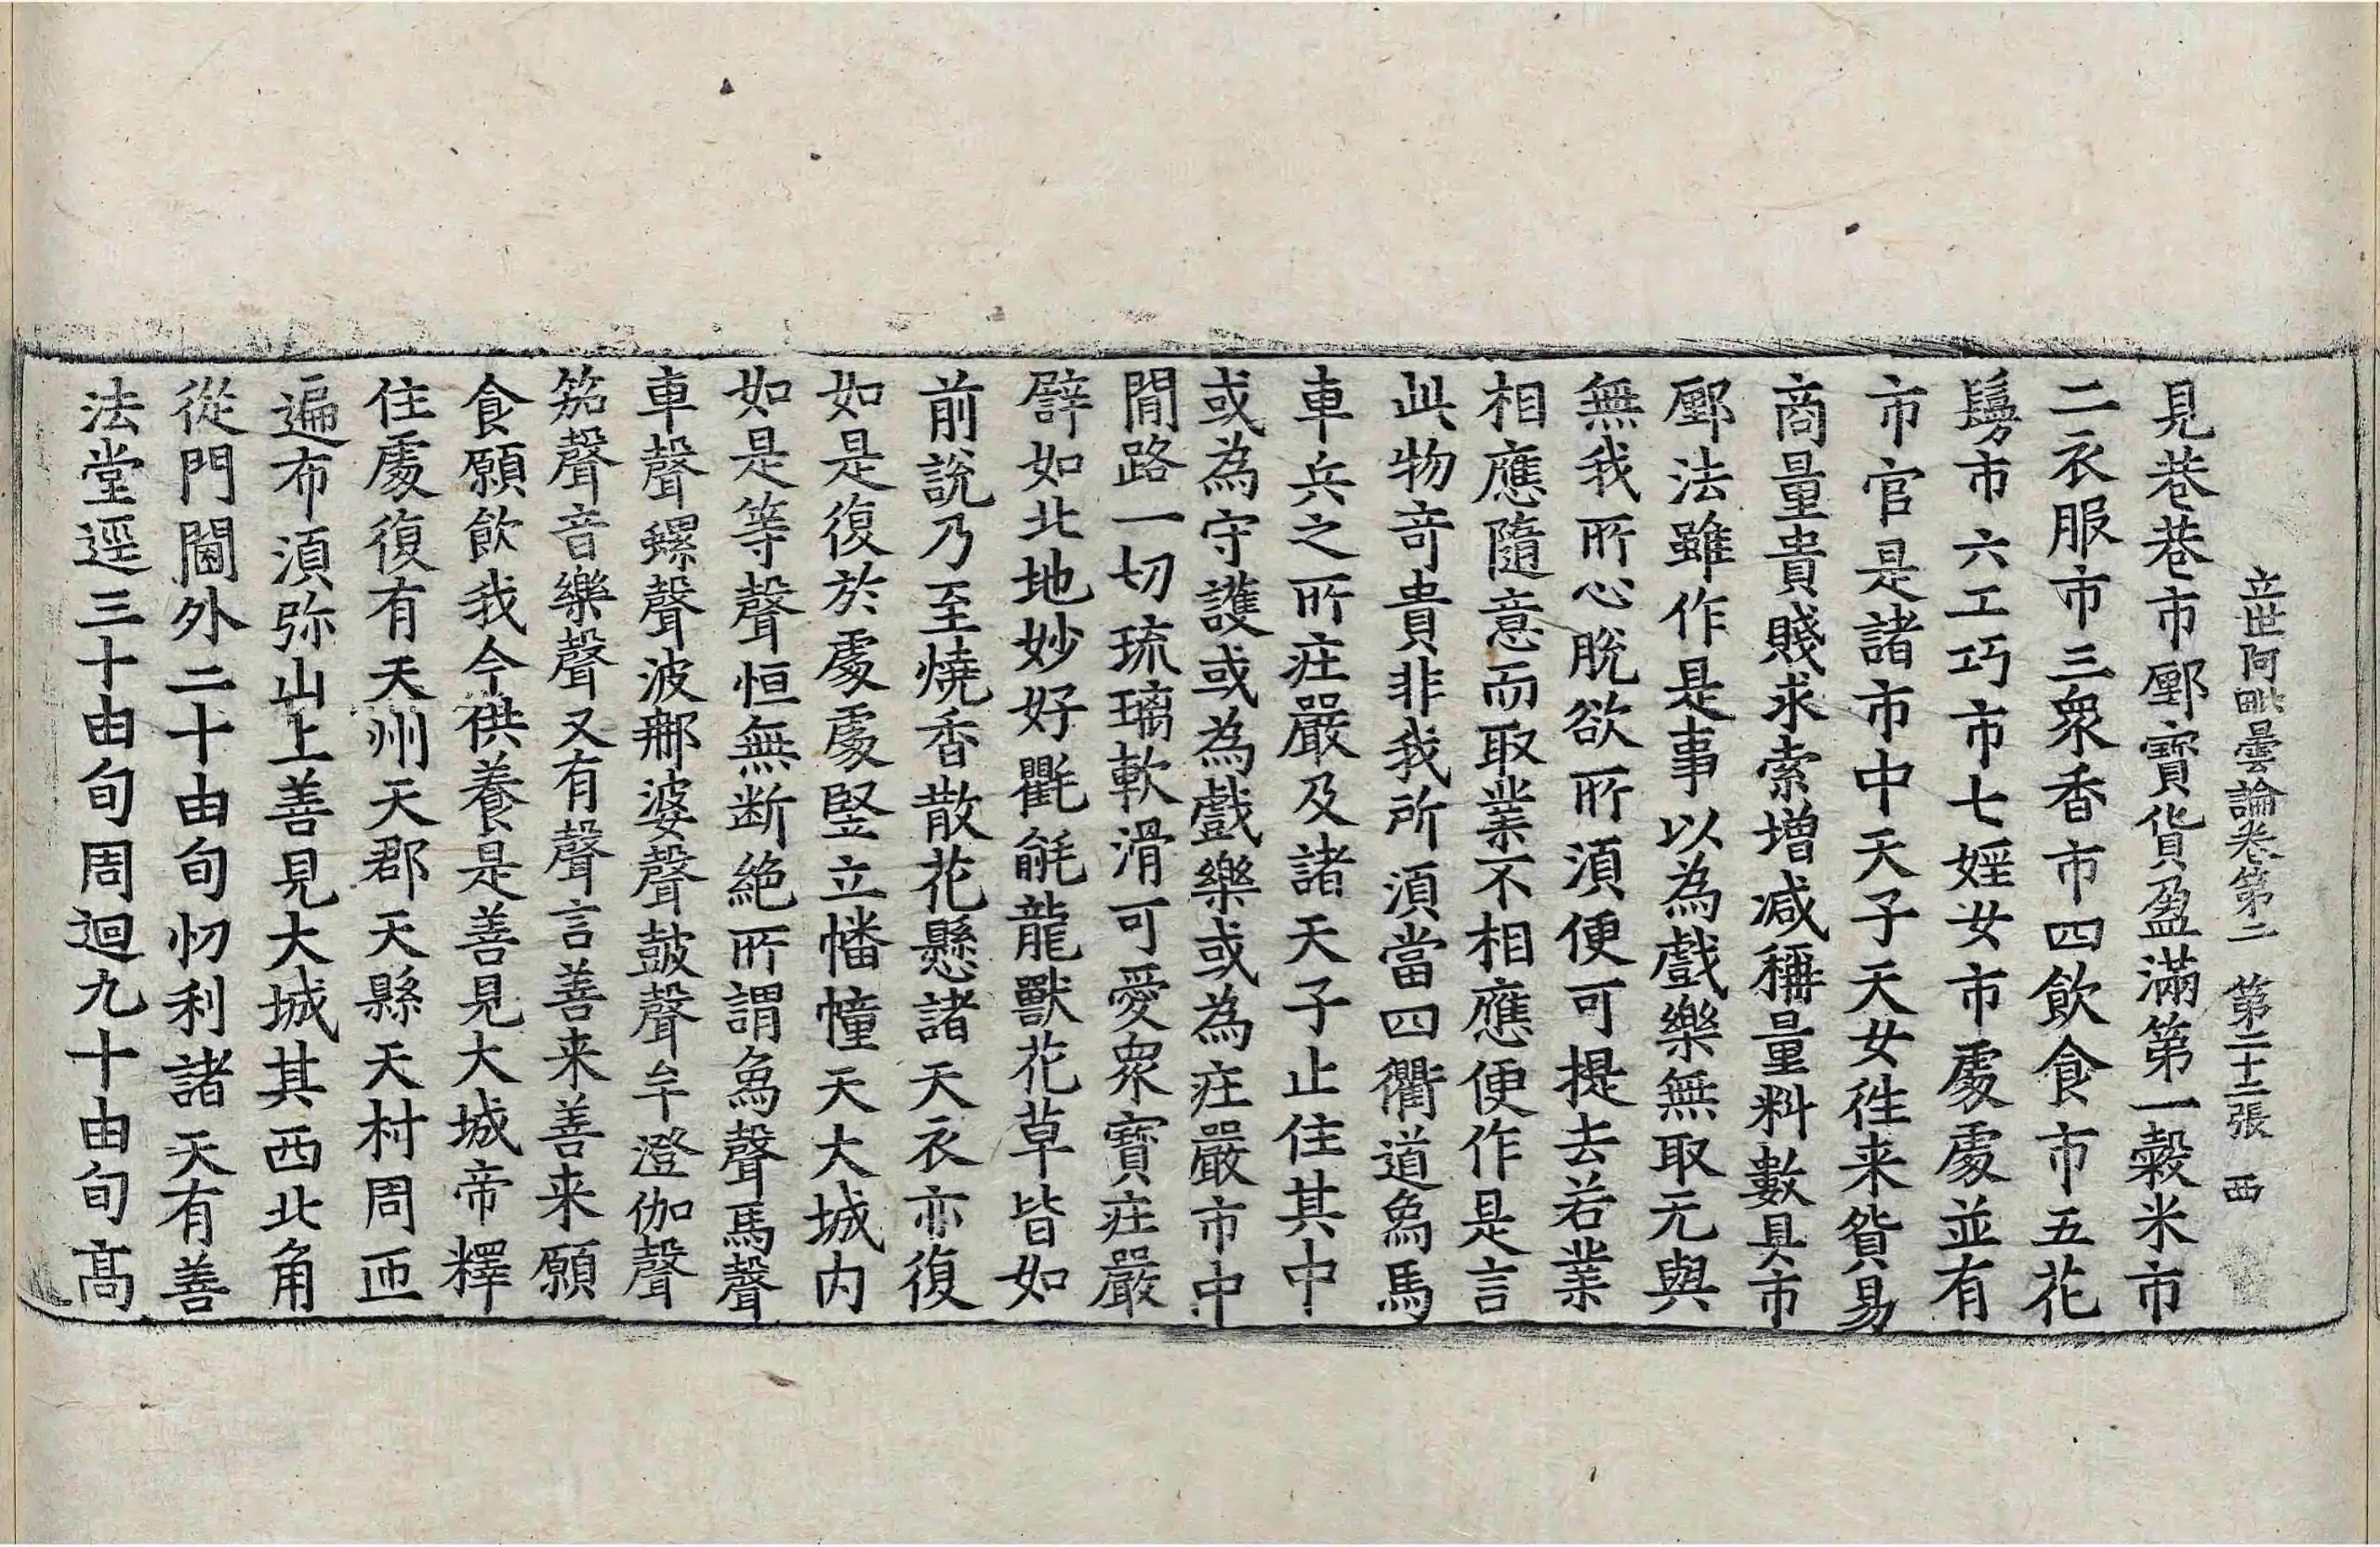 立世阿毗曇論卷第二 第二十二張 西
見巷巷市鄽寶貨盈滿第一穀米市
二衣服市三衆香市四飲食市五花
鬘市六工巧市七婬女市處處並有
市官是諸市中天子天女往来貨易
商量貴賤求索增减稱量料數具市
鄽法雖作是事以為戲樂無取无與
無我所心脫欲所須便可提去若業
相應隨意而取業不相應便作是言
此物竒貴非我所須當四衢道象馬
車兵之所莊嚴及諸天子止住其中
或為守護或為戲樂或為莊嚴市中
間路一切琉璃軟滑可愛衆寶莊嚴
譬如北地妙好氍毹龍獸花草皆如
前說乃至燒香散花懸諸天衣亦復
如是復於處處竪立幡幢天大城内
如是等聲恒無断絶所謂象聲馬聲
車聲螺聲波那婆聲鼓聲牟澄伽聲
笳聲音樂聲又有聲言善来善来願
食願飲我今供養是善見大城帝釋
住處復有天州天郡天縣天村周匝
遍布須弥山上善見大城其西北角
從門閫外二十由旬忉利諸天有善
法堂逕三十由旬周迴九十由旬髙